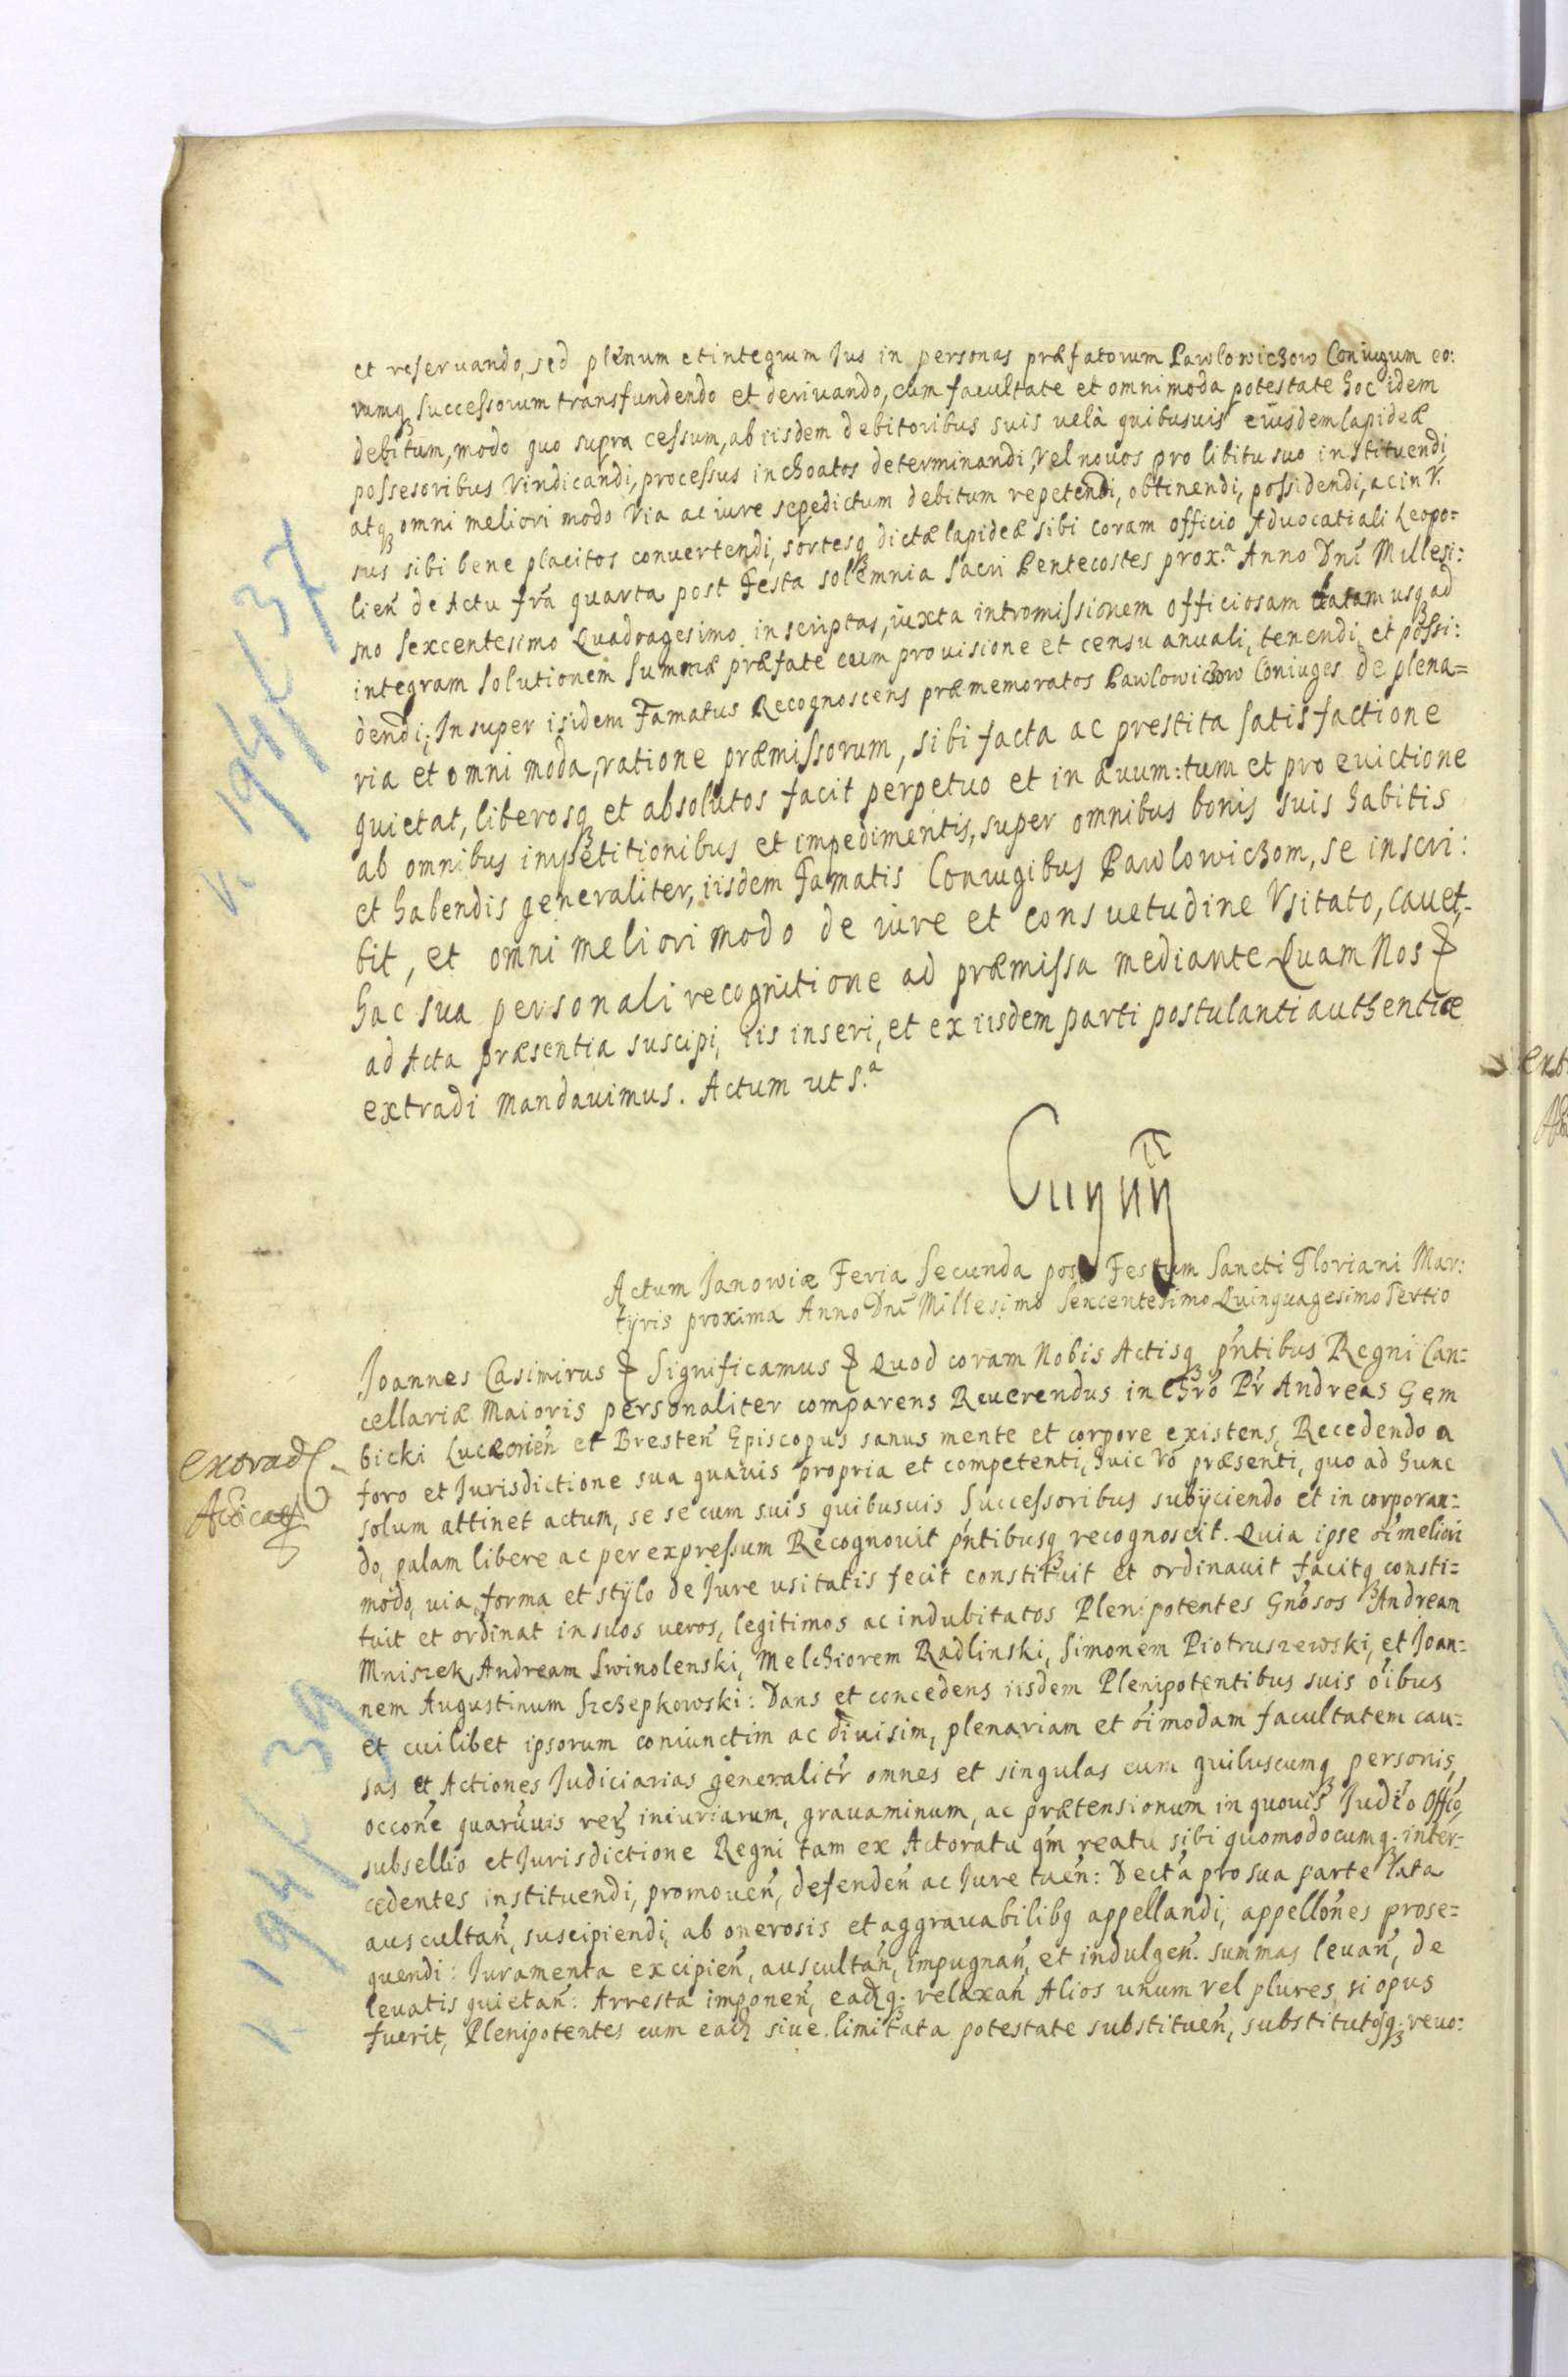 et reseruando, sed plenum et integrum Jus in personas præfatorum Pawlowiczow Coniugum eo:
rumqꝫ successorum transfundendo et deriuando, cum facultate et omnimoda potestate hoc idem
debitum, modo quo supra cessum, ab iisdem debitoribus suis uel à quibusuis eiusdem lapideæ
possesoribus Vindicandi, processus inchoatos determinandi, Vel nouos pro libitu suo instituendi,
atqꝫ omni meliori modo Via ac iure sepedictum debitum repetendi, obtinendi, possidendi, ac in V.
sus sibi bene placitos conuertendi, sortesqꝫ dictæ lapideæ sibi coram officio Aduocatiali Leopo=
lień de Actu fra quarta post Festa solemnia Sacri Pentecostes prox.ᵃ Anno Dnī Millesi:
mo Sexcentesimo Quadragesimo inscriptas, iuxta intromissionem officiosam datam usqꝫ ad
integram Solutionem Summæ præfate cum prouisione et censu anuali, tenendi et possi:
dendi; Insuper isidem Famatus Recognoscens præmemoratos Pawlowiczow Coniuges de plena=
ria et omni moda, ratione præmissorum, sibi facta ac prestita satisfactione
quietat, liberosqꝫ et absolutos facit perpetuo et in æuum: tum et pro euictione
ab omnibus impetitionibus et impedimentis, super omnibus bonis suis habitis
et habendis generaliter, iisdem Famatis Coniugibus Pawlowiczom, se inscri:
bit, et omni meliori modo de iure et consuetudine Vsitato, cauet,
hac sua personali recognitione ad præmissa mediante Quam Nos
ad Acta præsentia suscipi, iis inseri, et ex iisdem parti postulanti authentice
extradi mandauimus. Actum ut s.ᵃ
Actum Janowiæ Feria Secunda post Festum Sancti Floriani Mar:
tyris proxima Anno Dnī Millesimo Sexcentesimo Quinquagesimo Tertio
Joannes Casimirus Significamus Quod coram Nobis Actisqꝫ pńtibus Regni Can=
cellariæ Maioris personaliter comparens Reuerendus in Chro Pr Andreas Gem
bicki Luceorień et Bresteń Episcopus sanus mente et corpore existens, Recedendo a
foro et Jurisdictione sua quauis propria et competenti, huic Vo præsenti, quo ad hunc
extrad.
solum attinet actum, se se cum suis quibusuis Successoribus subijciendo et incorporan=
do, palam libere ac per expressum Recognouit pńtibusqꝫ recognoscit. Quia ipse oi meliori
modo, uia, forma et stylo de Jure usitatis fecit constituit et ordinauit facitqꝫ consti=
tuit et ordinat in suos ueros, legitimos ac indubitatos Plenipotentes Gnosos Andream
Mniszek, Andream Swinolenski, Melchiorem Radlinski, Simonem Piotruszewski, et Joan=
nem Augustinum Szczepkowski: Dans et concedens iisdem Plenipotentibus suis oibus
et cuilibet ipsorum coniunctim ac diuisim, plenariam et oimodam facultatem cau=
sas et Actiones Judiciarias generalitr omnes et singulas cum quibuscumqꝫ personis,
occone quaruuis reꝝ iniuriarum, grauaminum, ac prætensionum in quouis Judio Offio,
subsellio et Jurisdictione Regni tam ex Actoratu qm reatu sibi quomodocumqꝫ inter=
cedentes instituendi, promoueń, defendeń ac Jure tueń: Decta pro sua parte lata
auscultań, suscipiendi, ab onerosis et aggrauabilibꝫ appellandi, appellones prose=
quendi: Juramenta excipień, auscultań, impugnań, et indulgeń. summas leuań, de
leuatis quietań: Arresta imponeń, eadꝫqꝫ relaxań Alios unum vel plures, si opus
fuerit, Plenipotentes cum eadꝫ siue limitata potestate substitueń, substitutosqꝫ reuo:
V. 194/37
V. 194/39